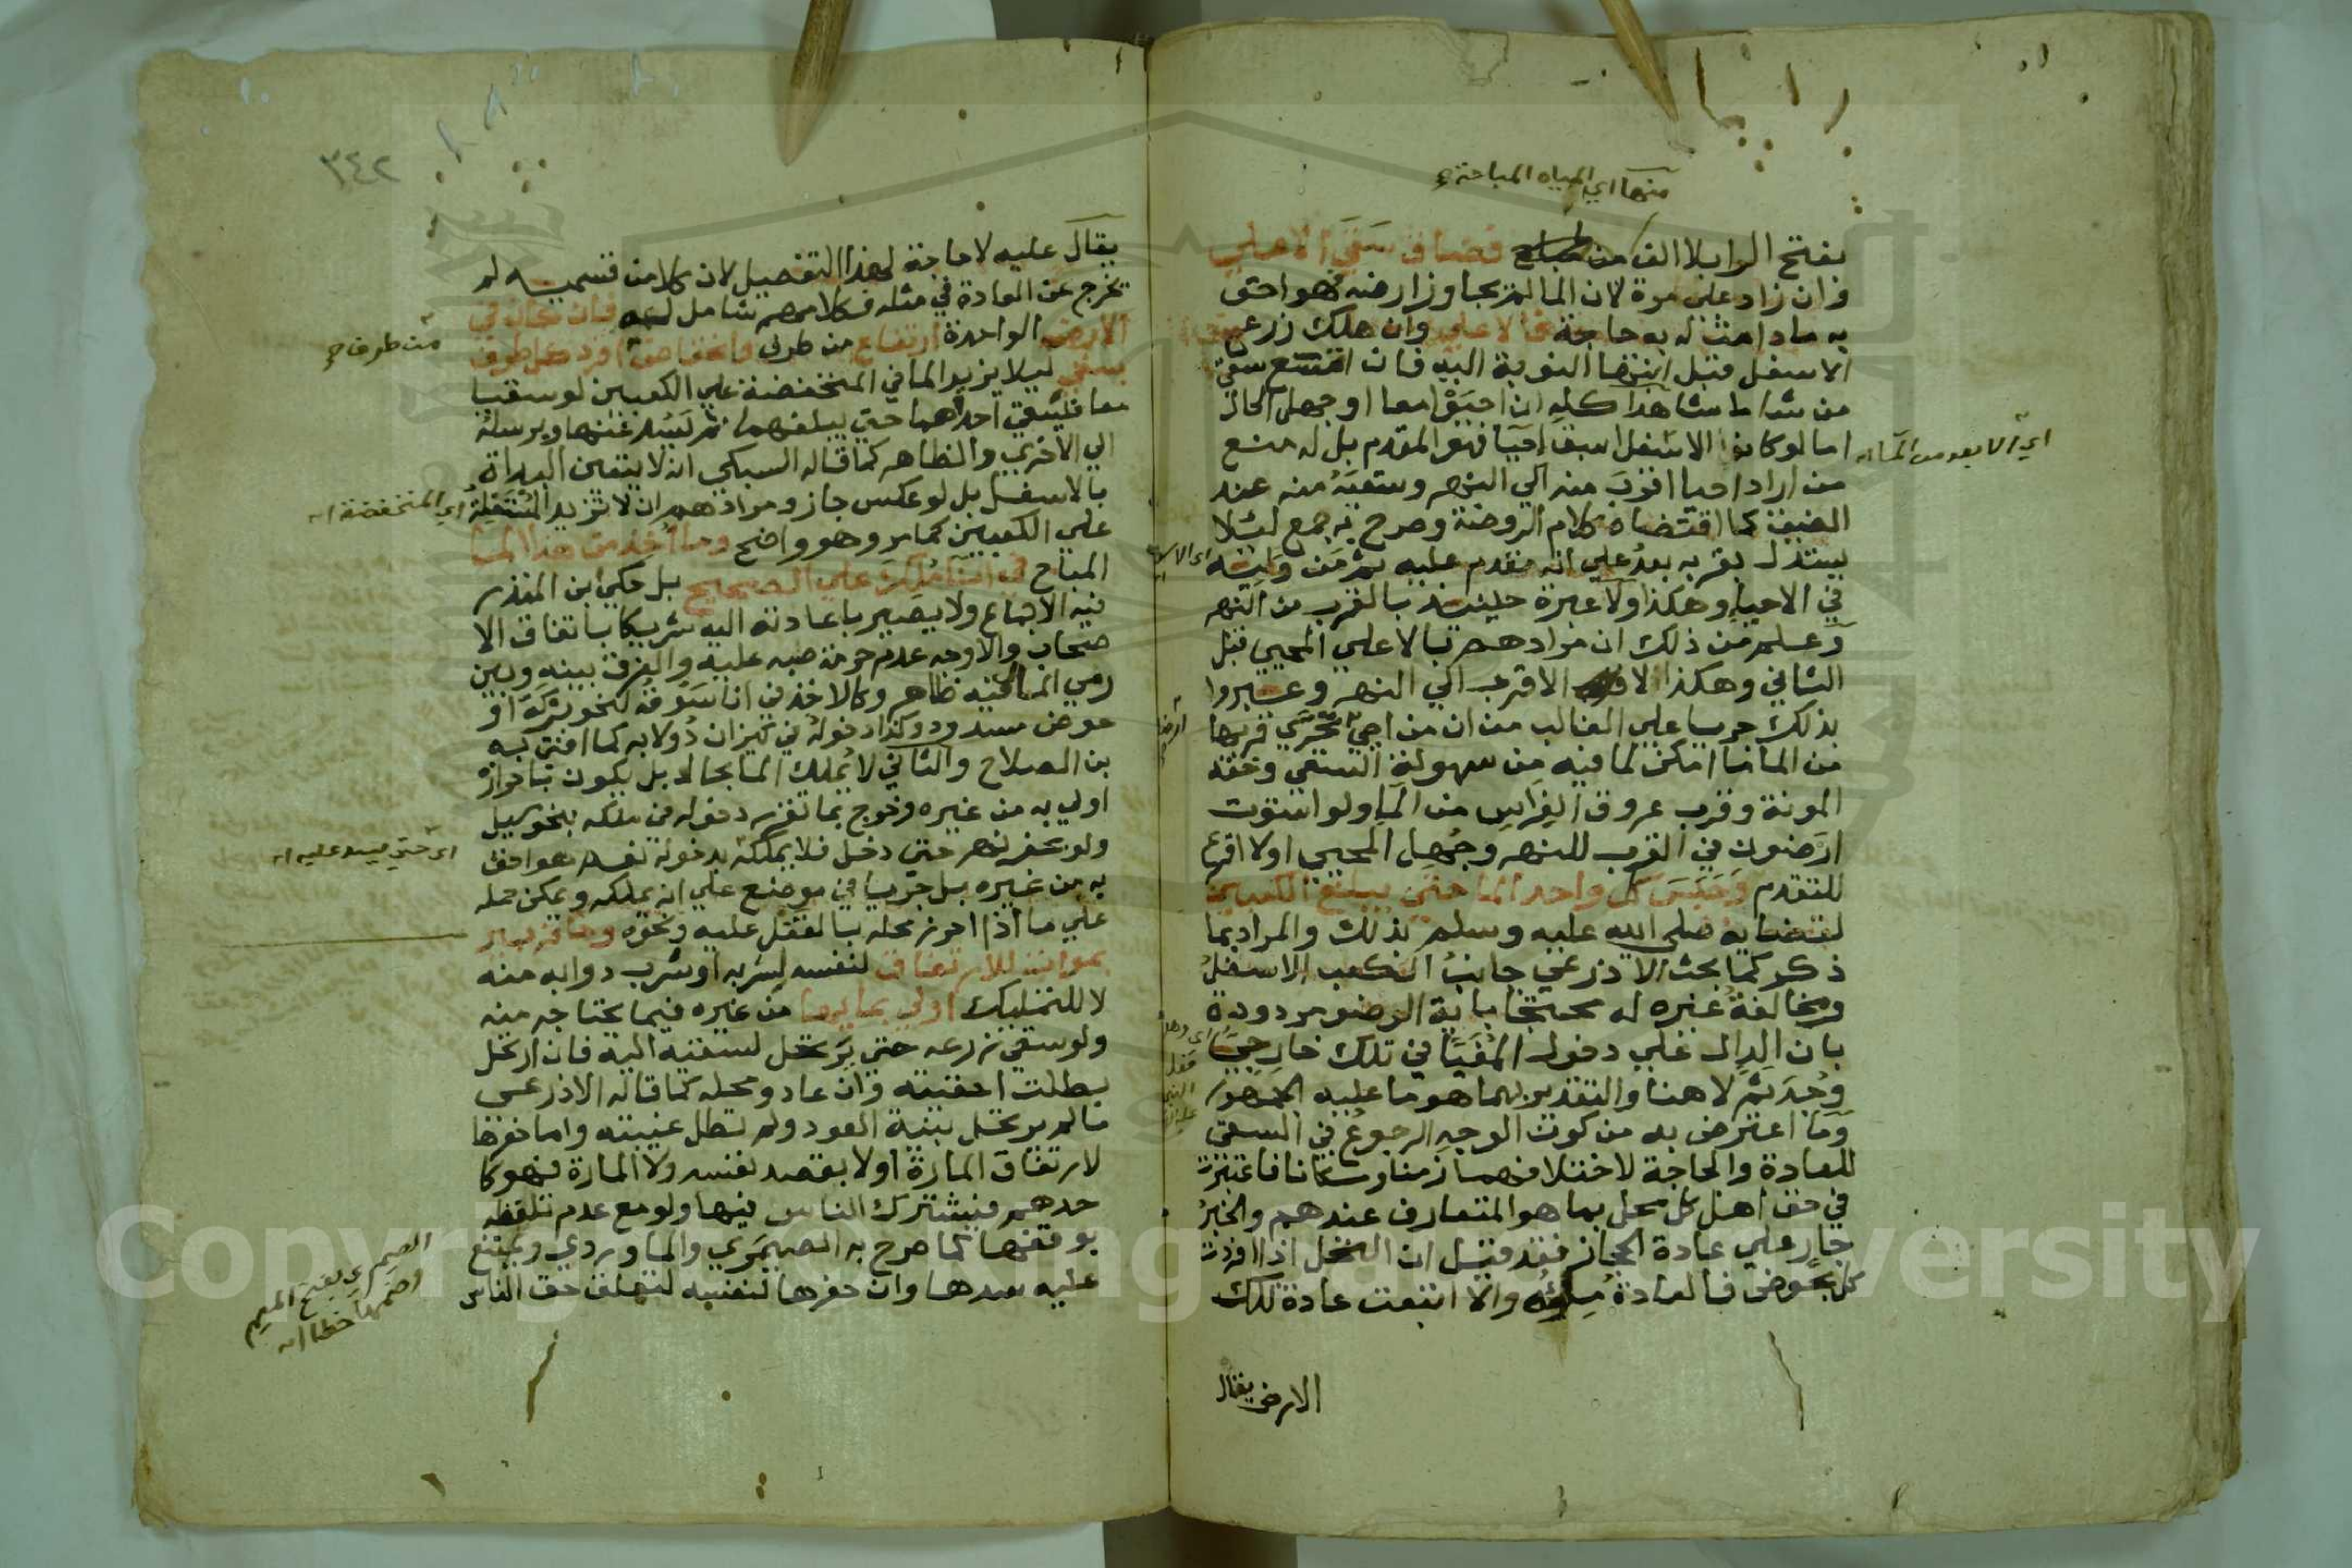 منها اي المياه المباحة
بفتح الرا بلا الف من فضاق سقي الاعلي
فان زاد علي مرة لان الماء لم يجاوز ارضه فهو احق
به ما دامت له به حاجة فالاعلي وان هلك زرع
الاسفل قبل انتها النوبة اليه فان اتسع سقي
من شا ما شا هذا كله ان احيوا معا او جهل الحال
اما لو كان الاسفل اسبق احيا فهو المقدم بل له منع
اي الابعد من الماء اه
من اراد احيا اقرب منه الي النهر وسقيه منه عند
الضيق كما اقتضاه كلام الروضة وصرح به جمع لئلا
يستدل بقربه بعد علي انه مقدم عليه ثم من وليه
في الاحيا وهكذا ولا عبرة حينئذ بالقرب من النهر
وعلم من ذلك ان مرادهم بالاعلي المحيي قبل
الثاني وهكذا الاقرب الي النهر وعبروا
بذلك جريا علي الغالب من ان من احيا يتحري قربها
من الماء ما امكن لما فيه من سهولة السقي وخفة
المونة وقرب عروق الغراس من الما ولو استوت
ارضون في القرب للنهر وجهل المحيي اولا اقرع
للتقدم وحبس كل واحد الما حتي يبلغ الكعبين
لقضايه صلي الله عليه وسلم بذلك والمراد بما
ذكر كما بحث الاذرعي جانب الكعب الاسفل
ومخالفة غيره له محتجا باية الوضو مردودة
بان الدال علي دخول المغيا في تلك خارجي
وجد ثم لا هنا والتقدير بهما هو ما عليه الجمهور
وما اعترض به من كون الوجه الرجوع في السقي
للعادة والحاجة لاختلافهما زمنا ومكانا فاعتبرت
في حق اهل كل محل بما هو المتعارف عندهم والخبر
جار علي عادة الحجاز فقد قيل ان النخل اذا افردت
كل بحوض فالعادة ملؤه والا اتبعت عادة تلك
الارض يقال
٣٤٢
يقال عليه لا حاجة لهذا التفصيل لان كلا من قسميه لم
يخرج عن العادة في مثله فكلامهم شامل له فان كان في
الارض الواحدة ارتفاع من طرف وانخفاض افرد كل طرف
من طرف
بسقي ليلا يزيد الما في المنخفضة علي الكعبين لو سقيا
معا فليسقي احداهما حتي يبلغهما ثم يسد عنها ويرسله
الي الاخري والظاهر كما قاله السبكي انه لا يتعين البداة
بالاسفل بل لو عكس جاز ومرادهم ان لا تزيد المستفلة
اي المنخفضة اه
علي الكعبين كما مر وهو واضح وما اخذ من هذا الما
المباح في انا ملك علي الصحيح بل حكي ابن المنذر
فيه الاجماع ولا يصير باعادته اليه شريكا باتفاق الا
صحاب والاوجه عدم حرمة صبه عليه والفرق بينه وبين
رمي المال فيه ظاهر وكالاخذ في انا سوقه لنحو بركة او
حوض مسدود وكذا دخوله في كيزان دولابه كما افتي به
بن الصلاح والثاني لا يملك الما بحال بل يكون باحرازه
اولي به من غيره وخرج بما تقرر دخوله في ملكه بنحو سيل
ولو بحفر نهر حتي دخل فلا يملكه بدخوله نعم هو احق
اي حتي يسد عليه اه
به من غيره بل جريا في موضع علي انه يملكه ويمكن حمله
علي ما اذا احرز محله بالقفل عليه ونحوه وحافر بير
بموات للارتفاق لنفسه لشربه او شرب دوابه منه
لا للتمليك اولي بمايها من غيره فيما يحتاجه منه
ولو سقي زرعه حتي يرتحل لسقيه اليه فان ارتحل
بطلت احقيته وان عاد ومحله كما قاله الاذرعي
ما لم يرتحل بنية العود ولم تطل غيبته واما حفرها
لارتفاق المارة او لا بقصد نفسه ولا المارة فهو كا
حدهم فيشترك الناس فيها ولو مع عدم تلفظه
بوقفها كما صرح به الصيمري والماوردي ويمتنع
عليه سدها وان حفرها لنفسه لتعلق حق الناس
الصيمري بفتح الميم
وضمها خطا اه